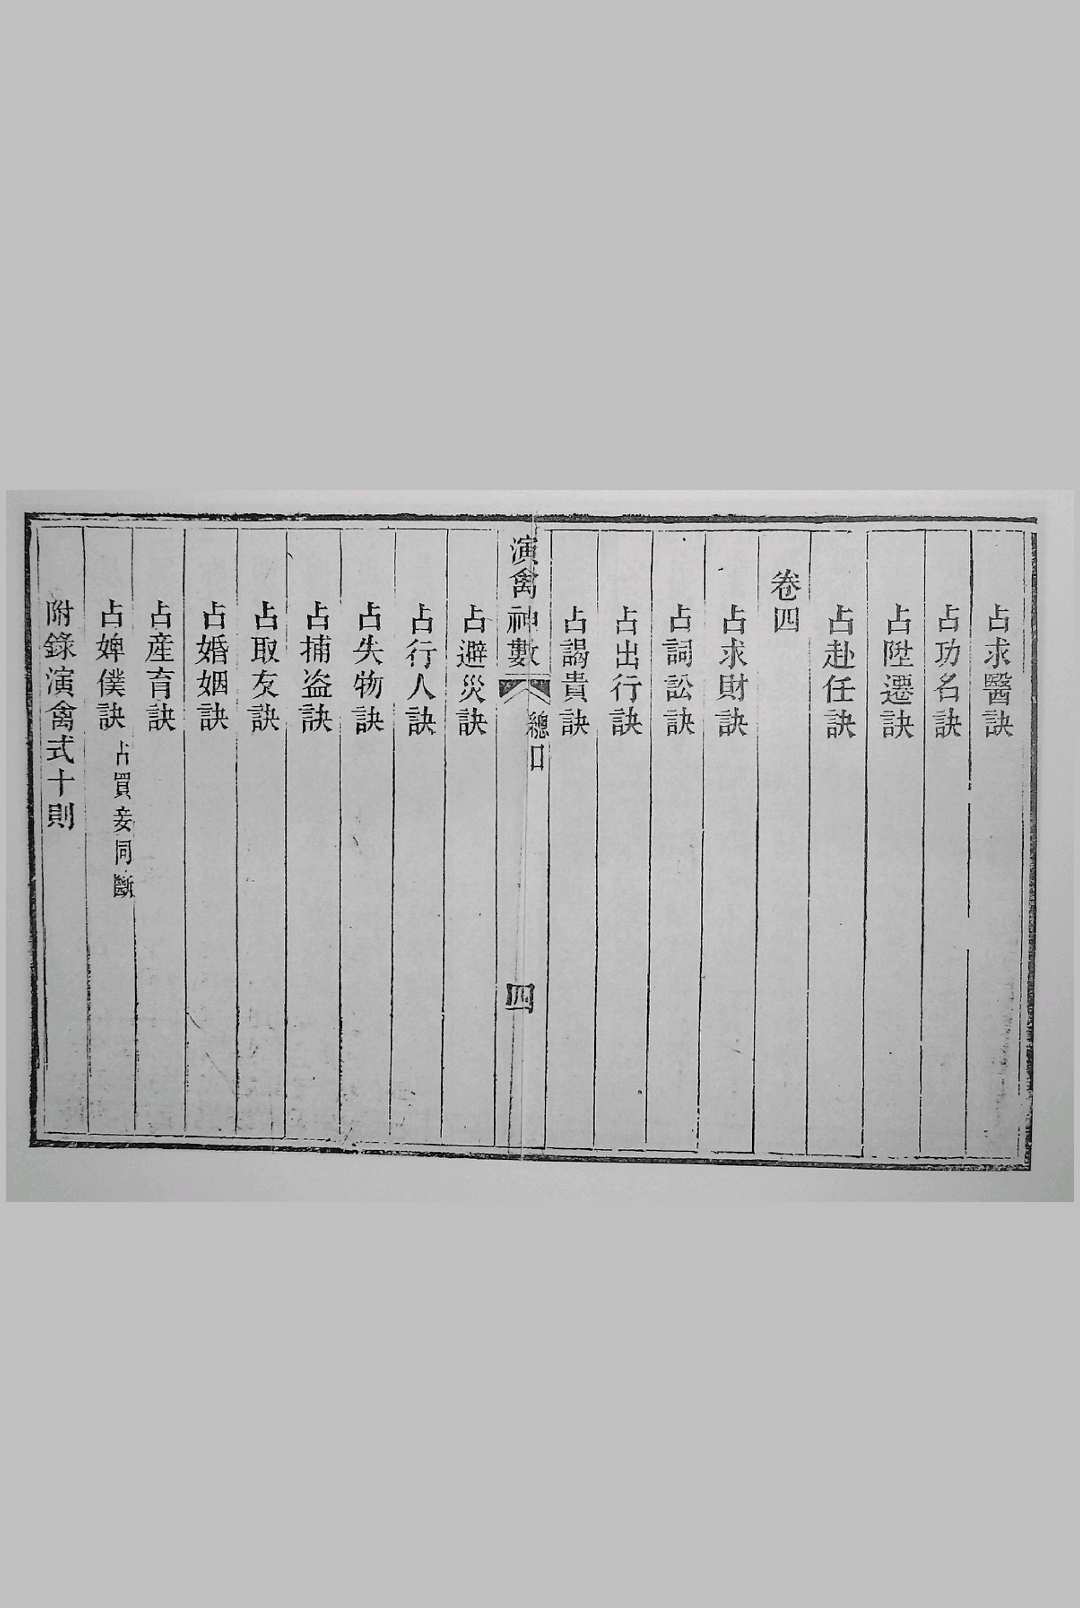 占求醫訣
占功名訣
占陞遷訣
占赴任訣
卷四
占求財訣
占詞訟訣
占出行訣
占謁貴訣
演禽神數
總口
四
占避災訣
占行人訣
占失物訣
占捕盗訣
占取友訣
占婚姻訣
占産育訣
占婢僕訣 占買妾同斷
附錄演禽式十則